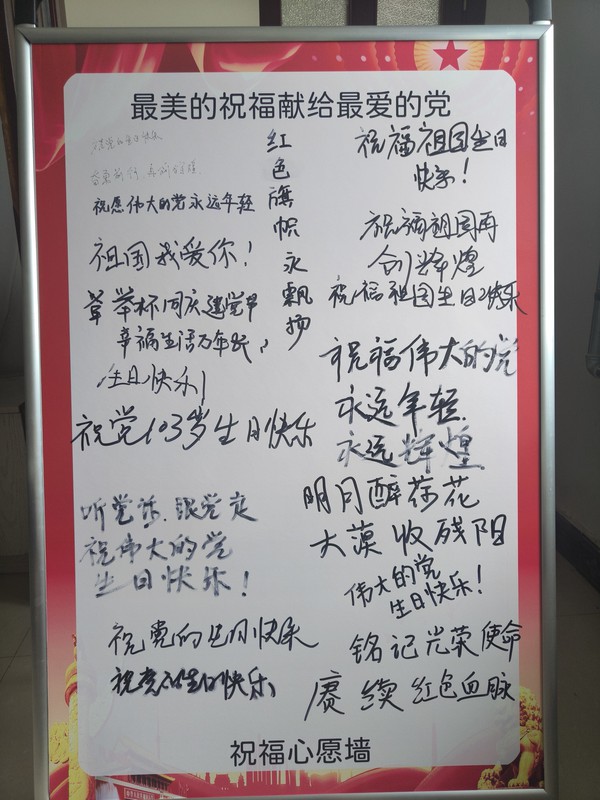 最美的祝福献给最爱的党
祝党的生日快乐
祝愿伟大的党永远年轻
祖国我爱你！
举杯同庆建党节
幸福生活万年长，
生日快乐！
祝党103岁生日快乐
听党话.跟党走
祝伟大的党
生日快乐！
祝党的生日快乐
祝党的生日快乐
红色旗帜永飘扬
祝福祖国生日
快乐！
祝福祖国再
创辉煌
祝福祖国生日快乐
祝福伟大的党
永远年轻.
永远辉煌
明月醉荷花
大漠收残阳
伟大的党
生日快乐！
铭记光荣使命
赓续红色血脉
祝福心愿墙